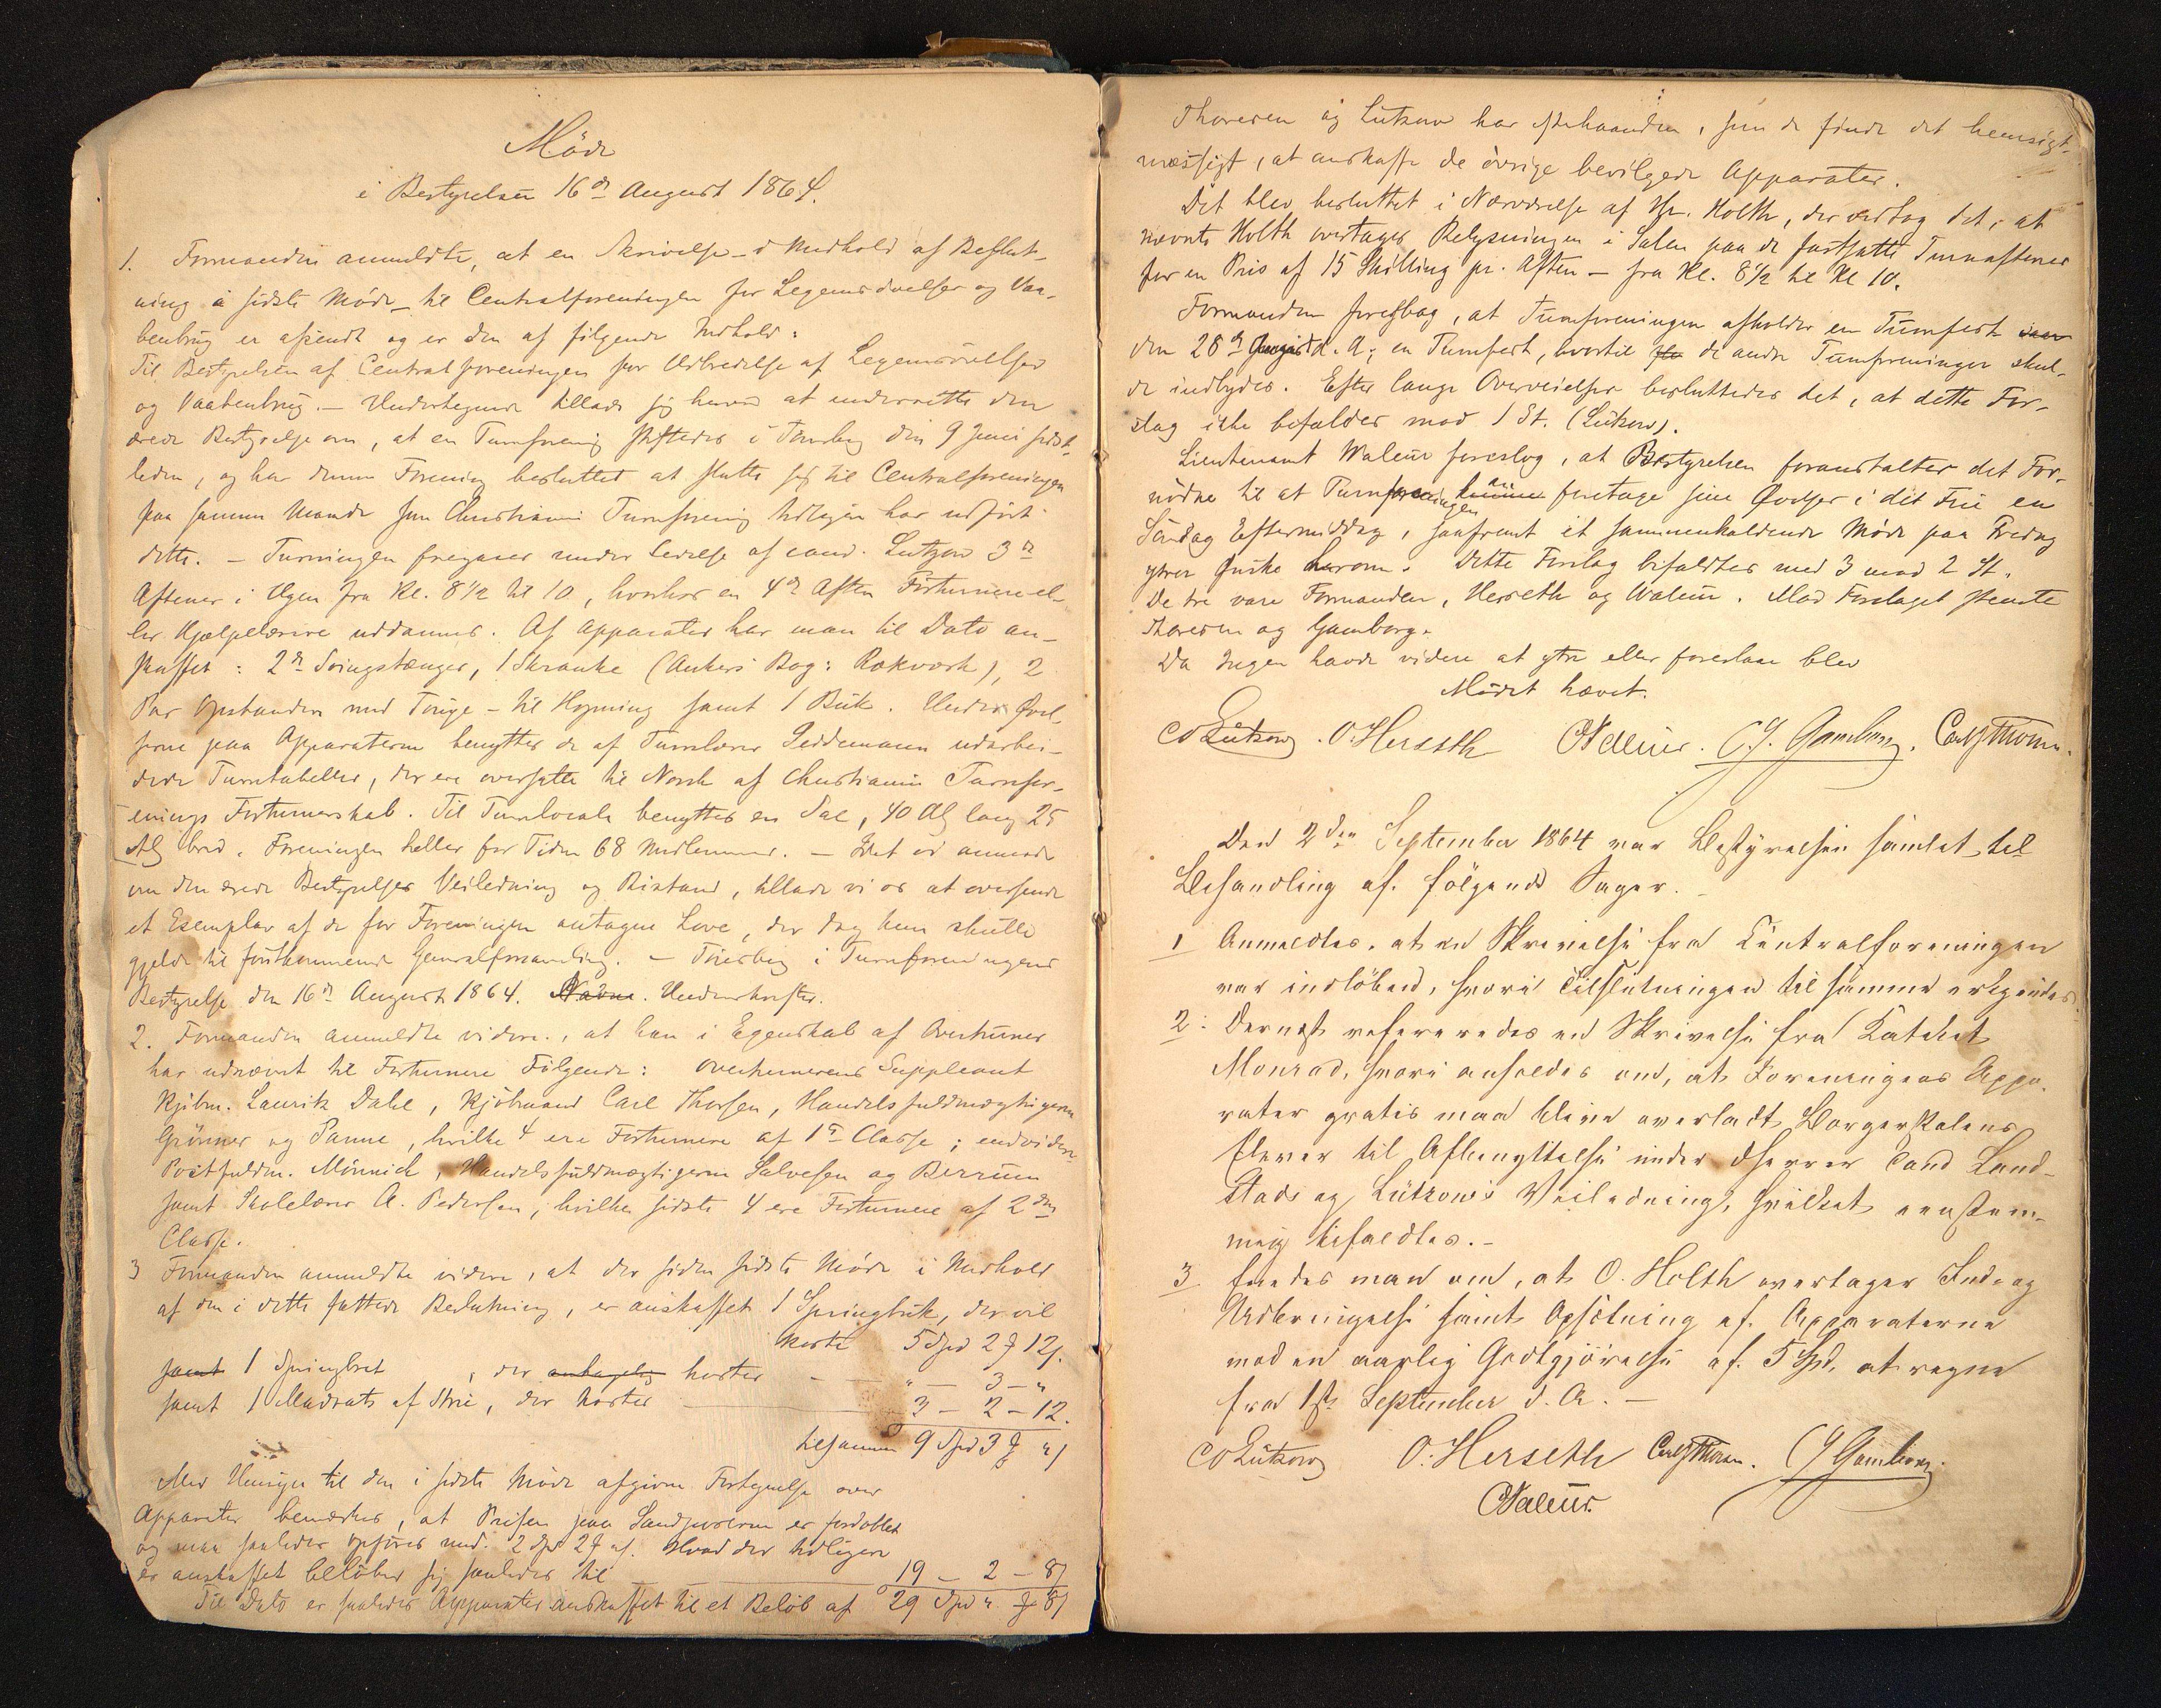 Möde
i Bestyrelsen 16de August 1864.
1. Formanden anmeldte, at en Skrivelse – i Medhold af Beslut-
ning i sidste Möde – til Centralforeningen for Legemsövelser og Vaa-
benbrug er afsendt og er den af fölgende Indhold:
Til Bestyrelsen af Centralforeningen for Udbredelse af Legemsövelser
og Vaabenbrug. – Undertegnede tillade sig herved at underrette den
ærede Bestyrelse om, at en Turnforening stiftedes i Tönsberg den 9 Juni sidst-
leden, og har denne Forening besluttet at slutte sig til Centralforeningen
paa samme Maade som Christiania Turnforening tidligere har udfört
dette. – Turningen foregaaer under Ledelse af cand. Lutzow 3de
Aftener i Ugen fra Kl. 8½ til 10, hvorhos en 4de Aften Forturnere el-
ler Hjælpelærere uddannes. Af Apparater har man til Dato an-
skaffet: 2de Svingstænger, 1 Skranke (Ankers Bog: Rækværk), 2
Par Opstandere med Touge – til Hopning samt 1 Buk. Under Övel-
serne paa Apparaterne benyttes de af Turnlærer Seddemann udarbei-
dede Turntabeller, der ere oversatte til Norsk af Christiania Turnfor-
enings Forturnerskab. Til Turnlocale benyttes en Sal, 40 Al lang 25
Al bred. Foreningen tæller for Tiden 68 Medlemmer. – Idet vi anmode
om den ærede Bestyrelses Veiledning og Bistand, tillade vi os at oversende
et Exemplar af de for Foreningen antagne Love, der dog kun skulle
gjelde til förstkommende Generalforsamling. – Tönsberg i Turnforeningens
Bestyrelse den 16de August 1864. Navne. Underskrifter.
2. Formanden anmeldte videre, at han i Egenskab af Overturner
har udnævnt til Forturnere Fölgende: Overturnerens Suppleant
Kjöbm. Lauritz Dahl, Kjöbmand Carl Thorsen, Handelsfuldmægtigerne
Grönner og Panne, hvilke 4 ere Forturnere af 1ste Classe; endvidere
Postfuldm. Mönnich, Handelsfuldmægtigerne Salvesen og Berrum
samt Skolelærer A. Pedersen, hvilke sidste 4 ere Forturnere af 2den
Classe.
3 Formanden anmeldte videre, at der siden sidste Möde i Medhold
af den i dette fattede Beslutning, er anskaffet 1 Springbuk, der vil
koste 5 Spd 2 ꝭ 12 ſ.
samt 1 Springbret, der antagelig koster – " – 3 – "
samt 1 Madrats af Strie, der koster 3 – 2 – 12.
tilsammen 9 Spd 3 ꝭ " ſ
Med Hensyn til den i sidste Möde afgivne Fortegnelse over
Apparater bemærkes, at Prisen paa Sandposerne er fordoblet
og maa saaledes opföres med 2 Spd 2 ꝭ " ſ. Hvad der tidligere
er anskaffet belöber sig saaledes til 19 – 2 – 8 ſ
Til Dato er saaledes Apparater anskaffet til et Belöb af 29 Spd " ꝭ 8 ſ
Thoresen og Lutzow har det ihænde, som de finde det hensigt-
mæssigt, at anskaffe de övrige bevilgede Apparater.
Det blev besluttet i Nærværelse af Hr. Holth, der vedtog det, at
nævnte Holth overtager Belysningen i Salen paa de fastsatte Turnaftener
for en Pris af 15 Skilling pr. Aften – fra Kl. 8½ til Kl 10.
Formanden foreslog, at Turnforeningen afholder en Turnfest
den 28de August d. A; en Turnfest, hvortil de andre Turnforeninger skul-
de indbydes. Efter lange Overveielser besluttedes det, at dette For-
slag ikke bifaldes mod 1 St. (Lützow).
Lieutenant Waleur foreslog, at Bestyrelsen foranstalter det For-
nödne til at Turnforeningen kan foretage sine Övelser i det Frie en
Söndag Eftermiddag, saafremt et sammenkaldende Möde paa Fredag
ytrer Önske herom. Dette Forslag bifaldtes med 3 mod 2 St.
De tre vare Formanden, Herseth og Waleur. Mod Forslaget stemte
Thoresen og Gamborg.
Da Ingen havde videre at ytre eller foreslaae blev
Mödet hævet.
CO Lützow. O. Herseth Waleur. CJ. Gamborg. Carl Thoresen.
Den 2den September 1864 var Bestyrelsen samlet til
Behandling af fölgende Sager. –
1 Anmeldtes, at en Skrivelse fra Centralforeningen
var indlöben, hvori Tilslutningen til samme erkjendes
2: Dernæst refereredes en Skrivelse fra Katechet
Monrad, hvori anholdes om, at Foreningens Appa-
rater gratis maa blive overladt Borgerskolens
Elever til Afbenyttelse under DHerrer Cand Land-
stads og Lützow's Veiledning, hvilket eenstem-
mig bifaldtes. –
3 Enedes man om, at O. Holth overtager Inde og
Udbringelse samt Opsætning af Apparaterne
mod en aarlig Godtgjörelse af 5 Spd, at regne
fra 1ste September d. A. –
CO Lützow O. Herseth Carl Thoresen. CJ Gamborg.
Waleur.